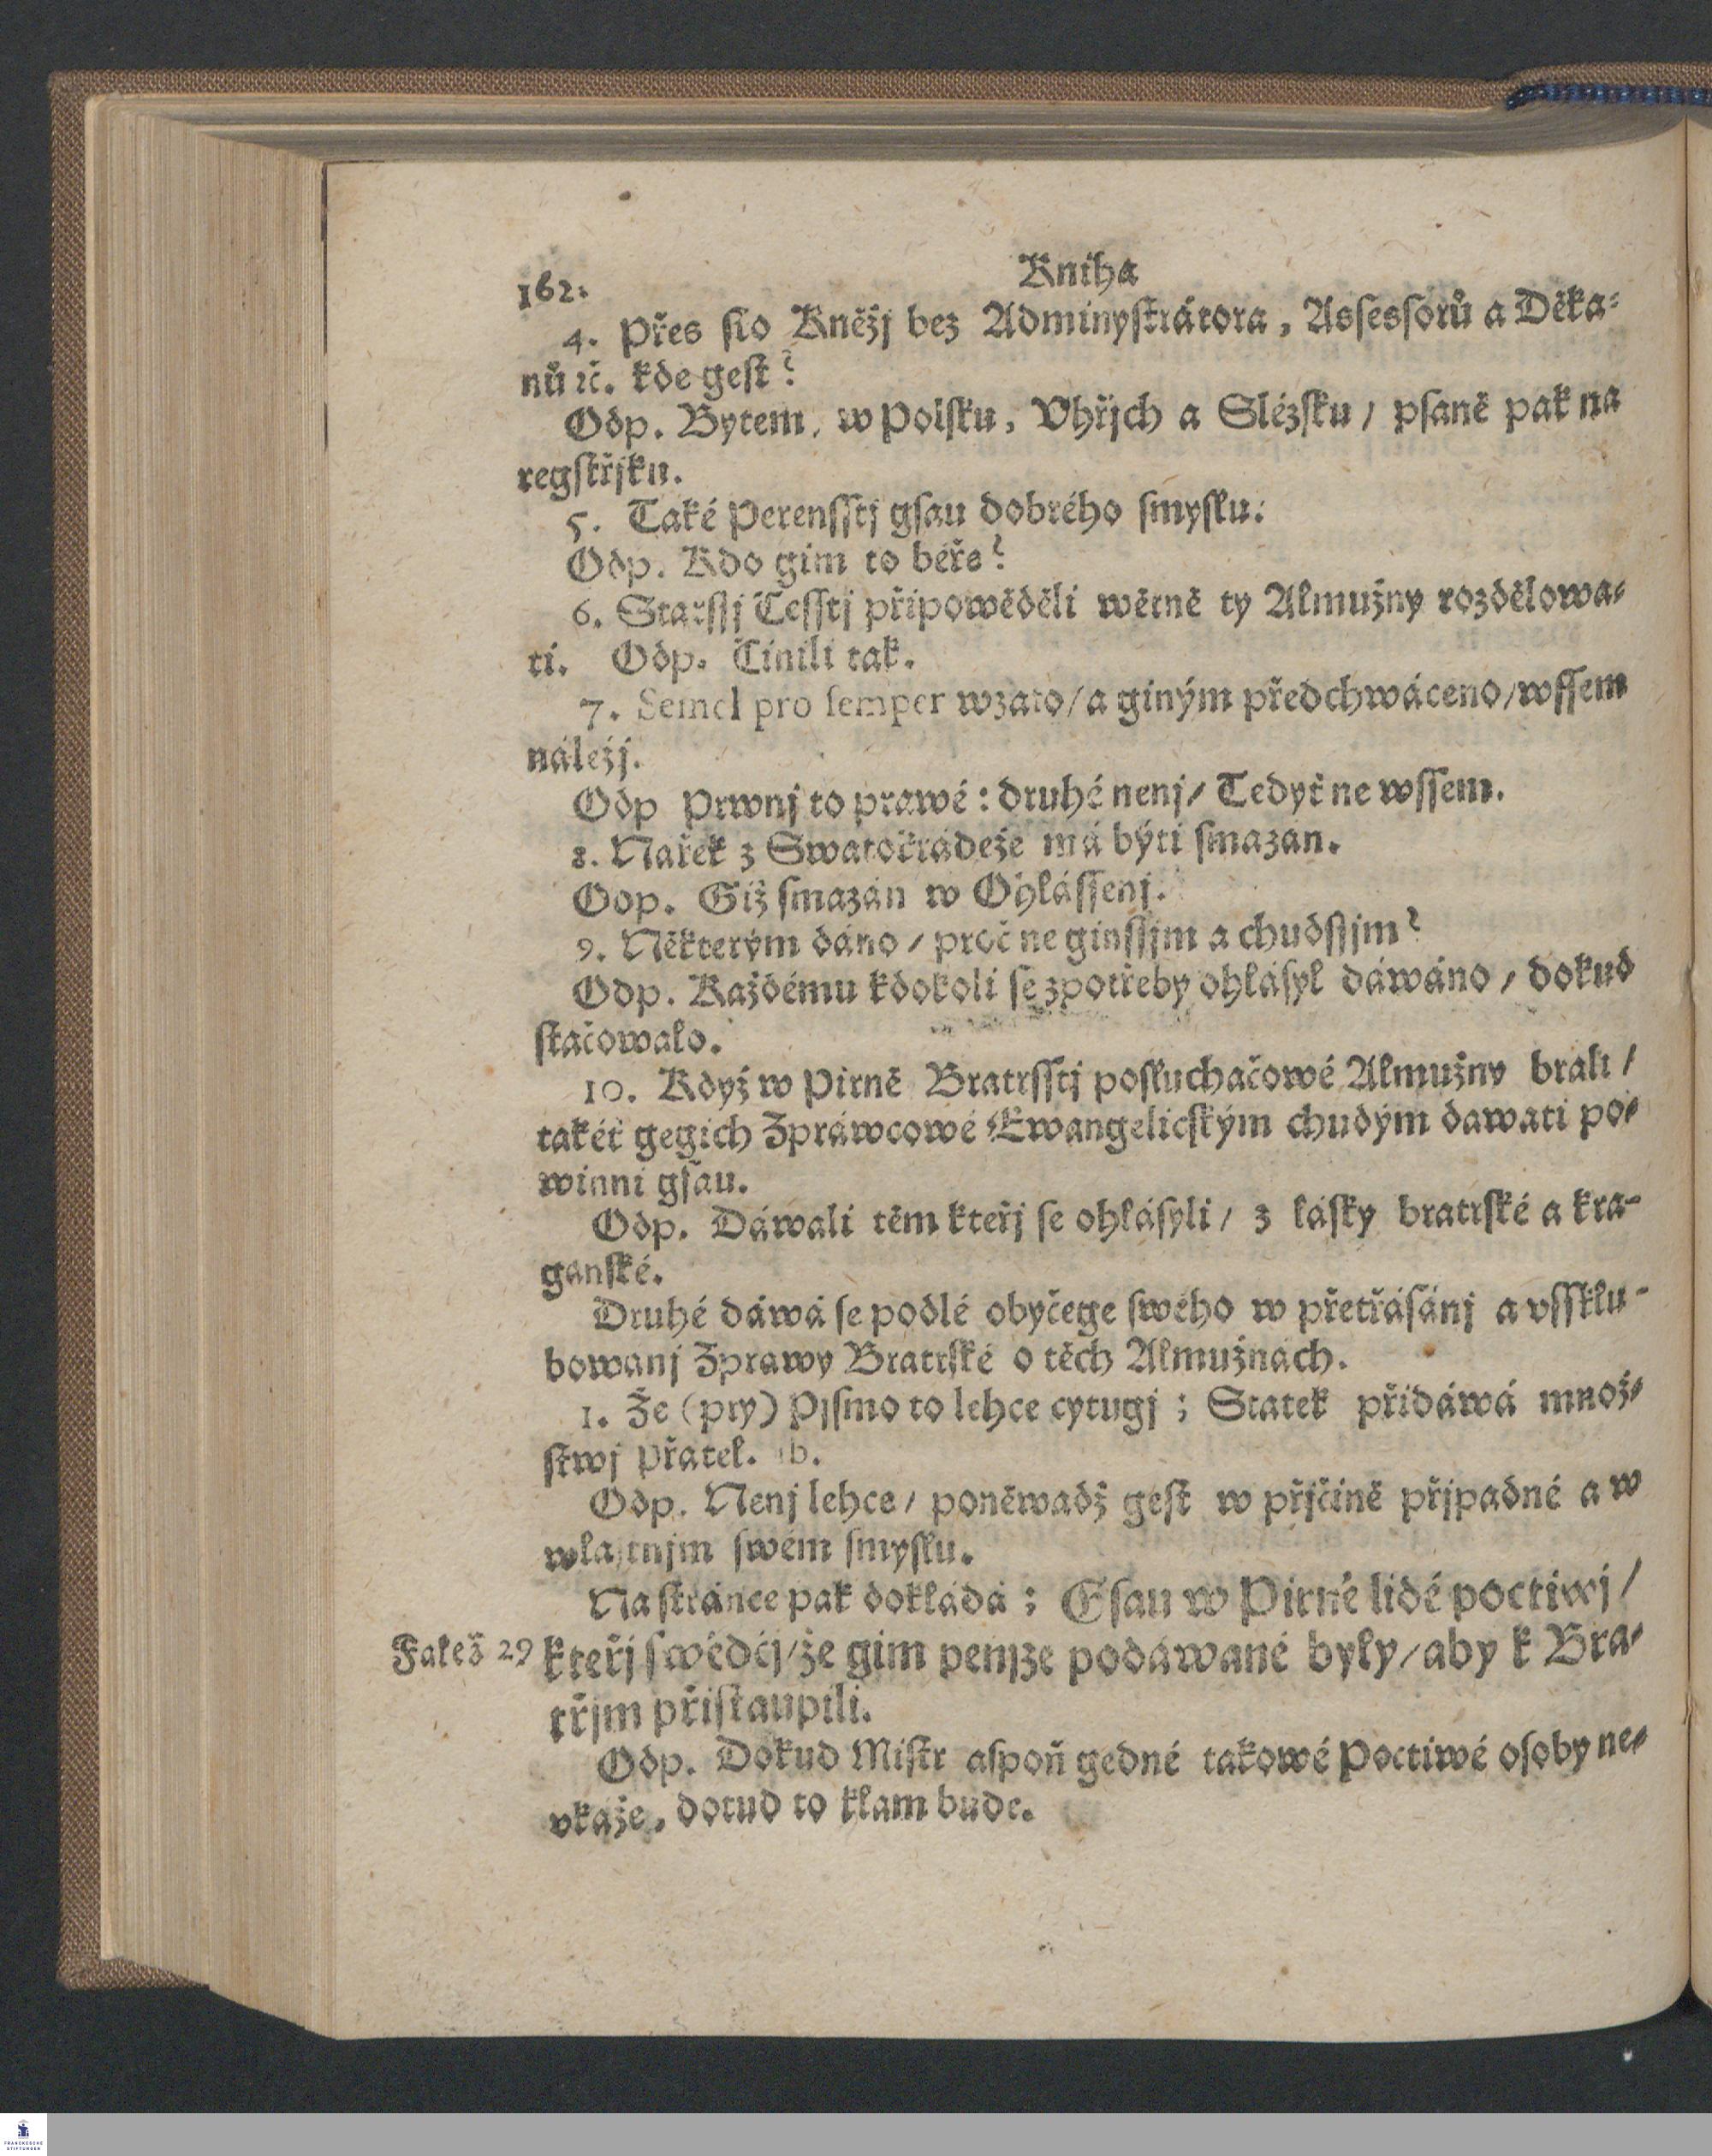 162. Kniha
4. Přes sto Kněžj bez Adminystrátora, Assessorů a Děka-
nů ꝛč. kde gest?
Odp. Bytem, w Polsku, Vhřjch a Slézsku / psaně pak na
regstřjku.
5. Také Perensstj gsau dobrého smyslu:
Odp. Kdo gim to béře?
6. Starssj Čessstj připowěděli wěrně ty Almužny rozdělowa-
ti. Odp. Činili tak.
7. Semel pro semper wzato / a giným předchwáceno / wssem
náležj.
Odp Prwnj to prawé: druhé nenj / Tedyť ne wssem.
8. Nařek z Swatočrádeže má býti smazan.
Odp. Giž smazán w Ohlássenj.
9. Některým dáno / proč ne ginssjm a chudssjm?
Odp. Každému kdokoli se z potřeby ohlásyl dáwáno / dokud
stačowalo.
10. Když w Pirně Bratrsstj posluchačowé Almužny brali /
takéť gegich Zpráwcowé Ewangelickým chudým dawati po-
winni gsau.
Odp. Dáwali těm kteřj se ohlásyli / z lásky bratrské a kra-
ganské.
Druhé dáwá se podlé obyčege swého w přetřásánj a vssklu-
bowanj Zprawy Bratrské o těch Almužnách.
1. Že (pry) Pjsmo to lehce cytugj; Statek přidáwá množ-
stwj Přatel. ib.
Odp. Nenj lehce / poněwadž gest w přjčině přjpadné a w
wlastnjm swém smyslu.
Na stránce pak dokládá: Gsau w Pirně lidé poctiwj /
Fakeš 29 kteřj swědčj / že gim penjze podáwané byly / aby k Bra-
třjm přistaupili.
Odp. Dokud Mistr aspoň gedné takowé Poctiwé osoby ne-
vkáže, dotud to klam bude.
FRANCKESCHE
STIFTUNGEN